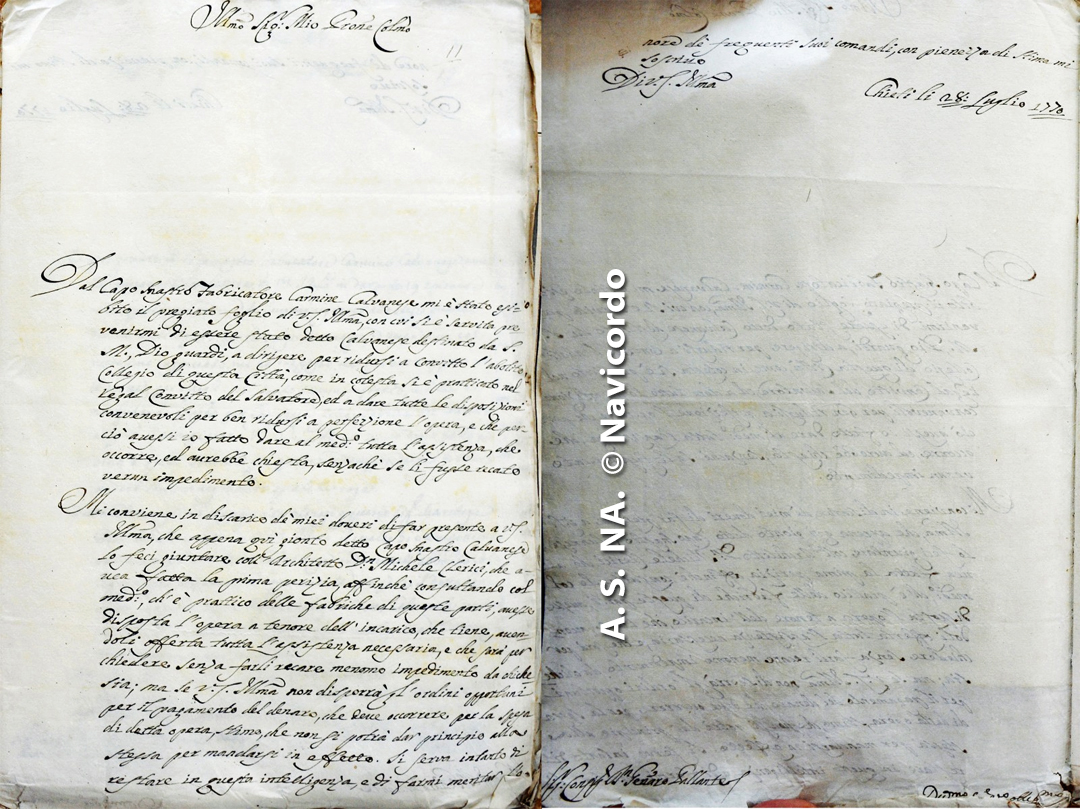 Illmo Sig.r Mio Prone Colmo
Dal Capo Mastro Fabricatore Carmine Calvanese mi è stato esi-
bito il pregiato foglio di V.S. Illma, con cui si è servita pre
venirmi di essere stato detto Calvanese destinato da S.
M., Dio guardi, a dirigere per ridursi a Convitto l'abolito
Collegio di questa Città, come in cotesta si è pratticato nel
Regal Convitto del Salvatore, ed a dare tutte le disposizioni
convenevoli per ben ridursi a perfezione l'opera, e che per
ciò avessi io fatto dare al med.o tutta l'assistenza, che
occorre, ed avrebbe chiesta, senzachè se li fusse recato
verun impedimento.
Mi conviene in discarico de' miei doveri di far presente a V.S.
Illma, che appena qui gionto detto Capo Mastro Calvanese
lo feci giuntare coll'Architetto D.n Michele Clerici, che a-
vea fatta la prima perizia, affinchè consultando col
med.o, ch'è prattico delle fabriche di queste parti, avesse
disposta l'opera a tenore dell'incarico, che tiene, aven-
doli offerta tutta l'assistenza necessaria, e che sarà per
chiedere senza farli recare menomo impedimento da chiche
sia; ma se V.S. Illma non disporrà gl'ordini opportuni
per il pagamento del denaro, che deve occorrere per la spesa
di detta opera, stimo, che non si potrà dar principio alla
stessa per mandarsi in effetto. Si serva intanto di
restare in questa intelligenza, e di farmi meritar l'o-
nore de' frequenti suoi comandi, con pienezza di stima mi
soscrivo
Di V.S. Illma
Chieti li 28: Luglio 1770
A. S. NA. © Navicordo
Gennaro Pallante